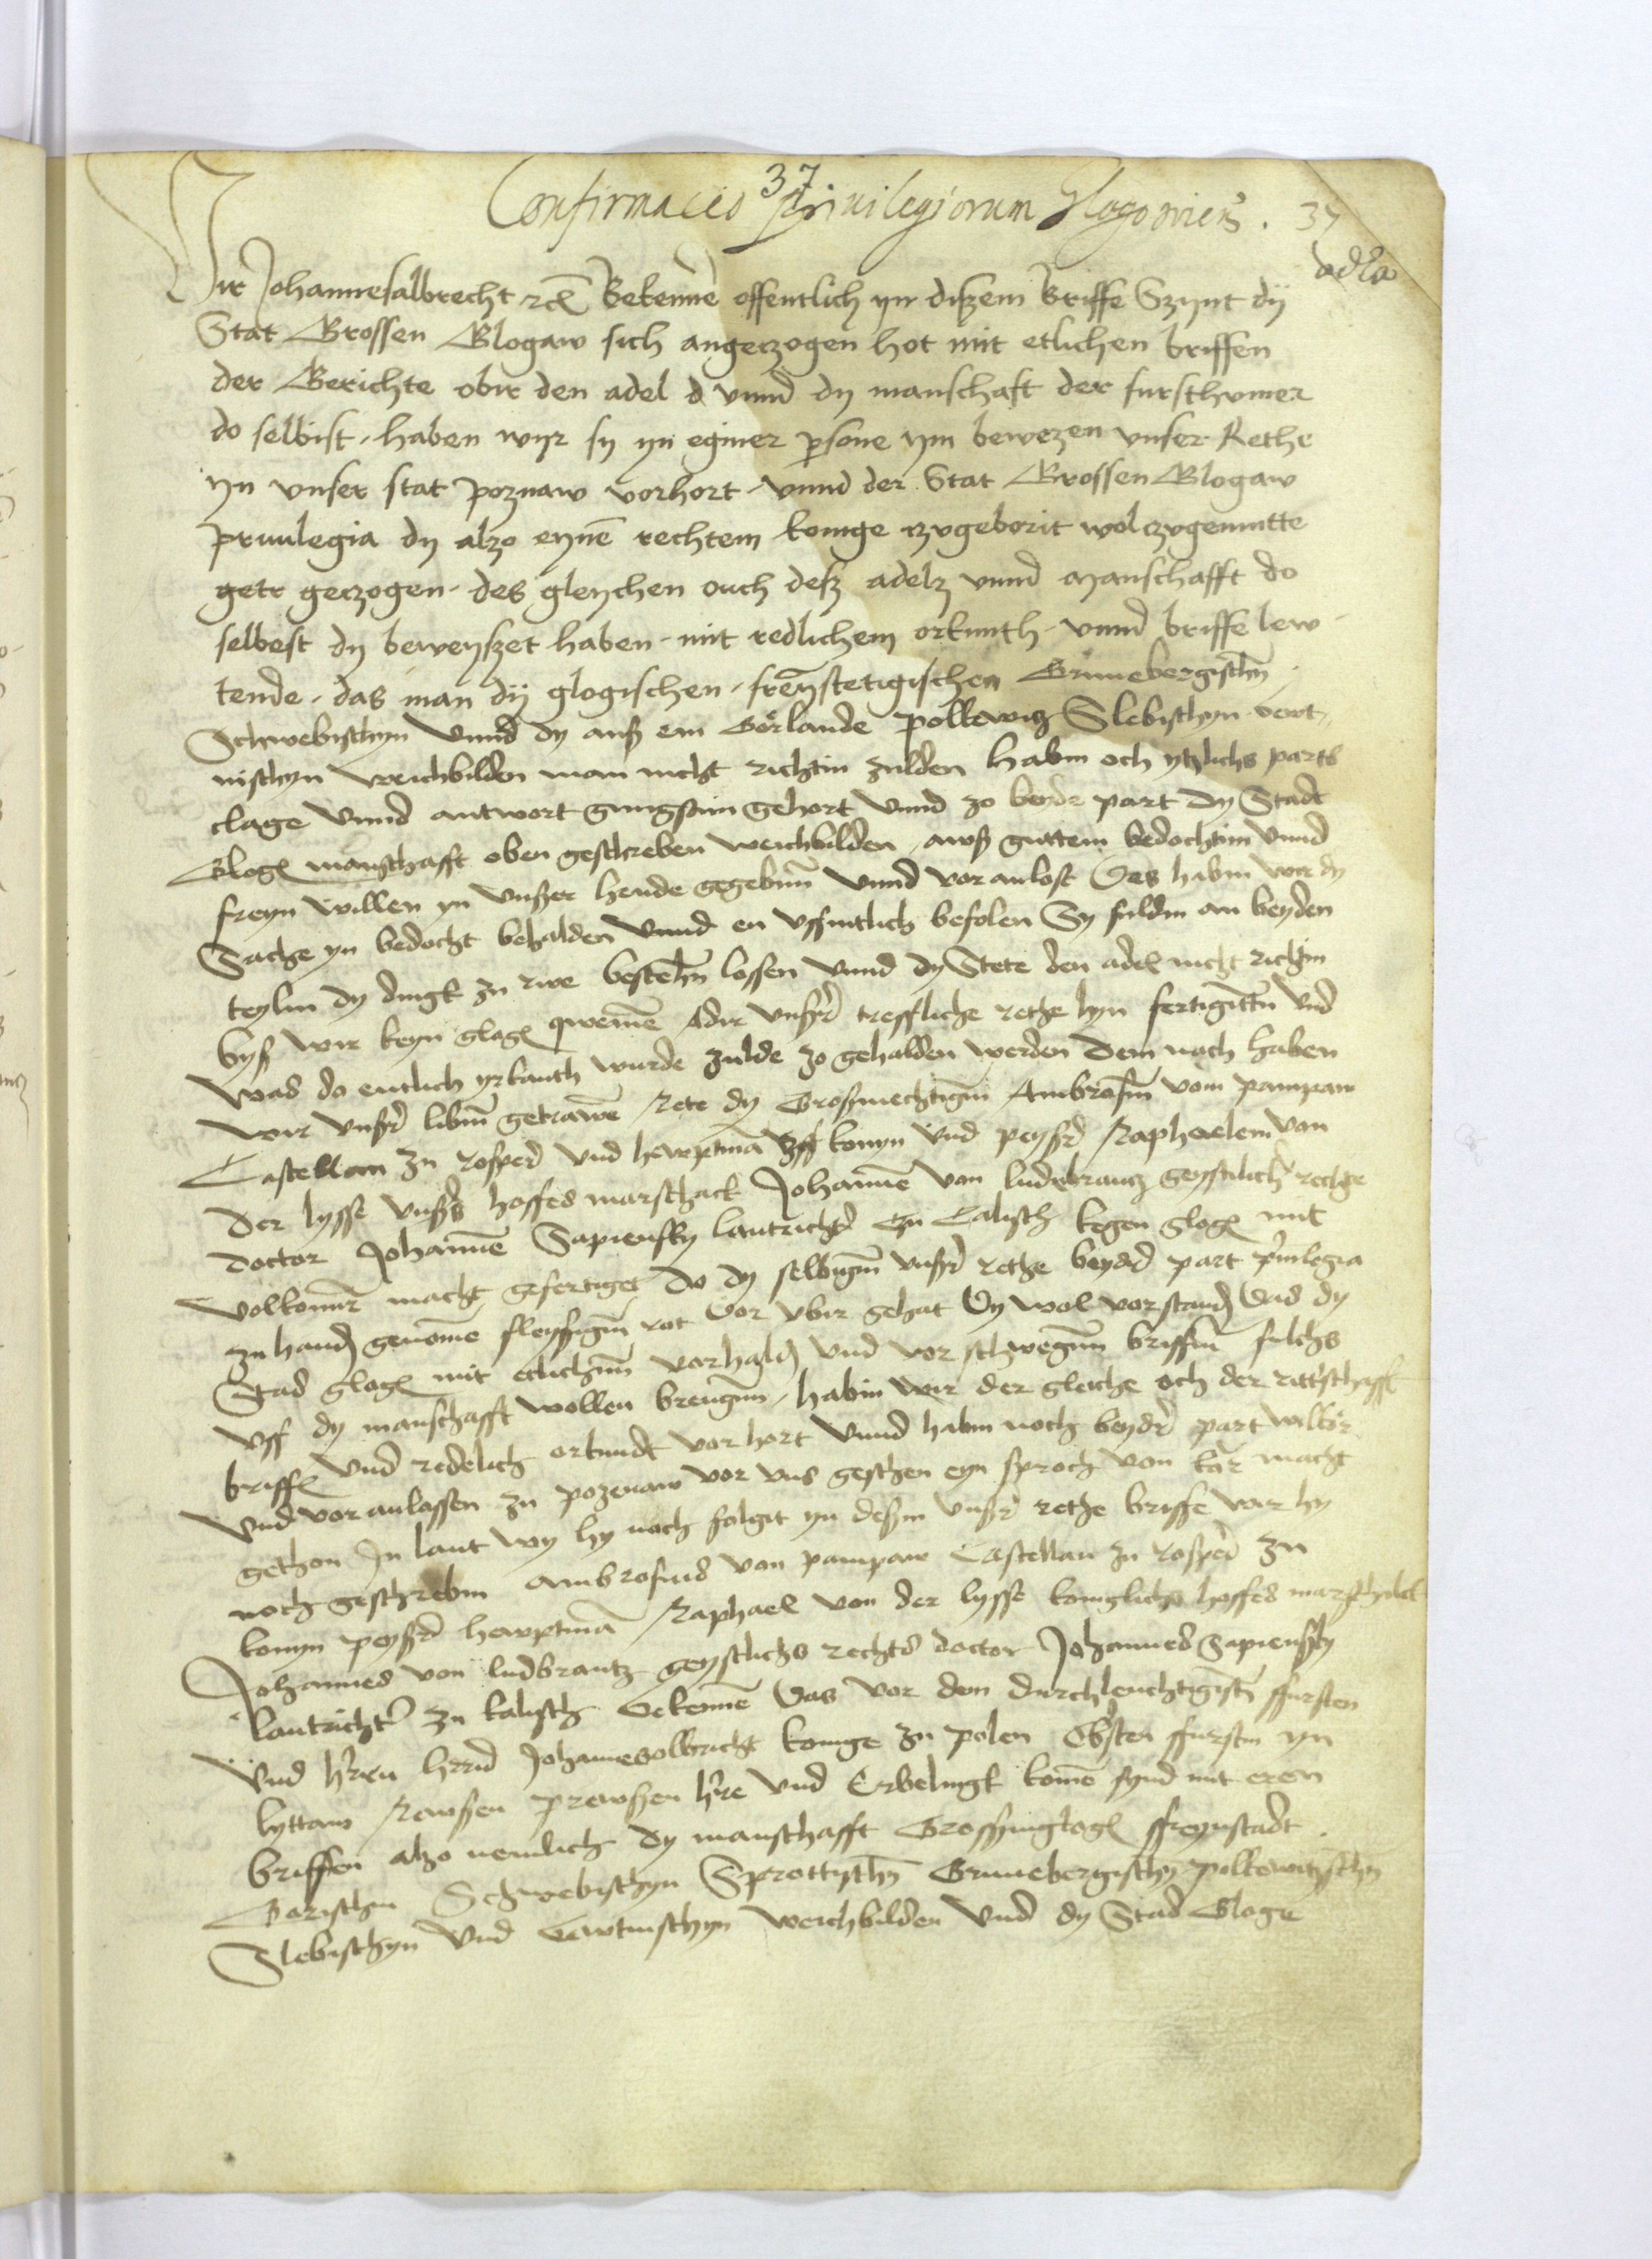 37
Confirmacio privilegiorum Glogoviens. 37
Wir Johannesalbrecht rc Bekenne offentlich yn diszem briffe Szynt dy
Stat Grossen Glogaw sich angeczogen hot mit etlichen briffen
der Gerichte obir den adel d vnnd dy manschaft der fursthvmer
do selbist, haben wyr sy yn eginer psone ym bewezen vnser Rethe
yn vnser stat poznaw vorhort, vnnd der Stat Grossen Glogaw
priuilegia dy alzo eyne rechtem konige czvgeborit wol czvgemutte
getr geczogen. des gleychen ouch desz adelz vnnd manschafft do
selbest dy beweyszet haben, mit redlichem orkunth, vnnd briffe lew
tende, das man dy glogischen, freystetigischen Grunebergischn
Schwebischyn Vnnd dy ausz em Gorlande polkewicz Slebischyn vewt
nischyn weichbilden man nicht richtin zulden habin och ytzlichs parts
clage Vnnd antwort gnugsam gehort Vnnd zo beyde part dy Stadt
Glog manschafft oben geschreben weichbilden, awsz guttem bedochtim vnnd
freyn willen yn vnszer hende gegebinn Vnnd vor anlost Das habin wir dy
Sache yn bedocht behalden Vnnd en vffintlich befolen Sy suldin an beyden
teylin dy dingk zu rwe bestehn lossen Vnnd dy Stete den adel nicht richtin
bysz wir keyn glog qweme Adir vnszer treffliche rethe hyn fertigittn Vnd
Was do entlich yrkanth wurde zulde zo gehalden werden Dem noch haben
Wir vnszer libin getrawe Rete dy Grosmechtigin Ambrosin vom pampaw
Castellan zu rosper vnd hewptma zu konyn vnd peyszer Raphaelem von
Der lysse vnszers hoffes marschack Johanne von ludbrancz geystlicher rechte
doctor Johanne Sapiensky lantrichter Cu Calisch kegen glog mit
Volkomer macht gefertiget Do dy selbigin vnszer rethe beyder part privilegia
zu hand genome fleyszigin rot Dor vbir gehat Dy wol vorstand Das dy
Stad glog mit etlichinn vorhald vnd vor schwegnn briffin sulchs
Vff dy manschafft wollen brengnn, habin wir der gleiche och der rittschafft
briffe Vnd redelich orkundt vorhort Vnnd habin noch beyder part willkor
Vnd vor anlossen zu pozenaw vor vns geschen eyn sproch von kor macht
gethon In laut wy hy noch folgit yn desin vnszer rethe briffe wir hy
noch geschrebin Ambrosius von pampaw Castellan zu rosper zu
konyn peyszer hewptma Raphael von der lysse koniglichs hoffes marschalck
Johannes von ludbrantz geystlichs rechts doctor Johannes Sapiensky
lantrichter zu kalisch Bekenne Das vor dem durchleuchtigistn ffursten
Vnd hern hern Johannesalbricht konige zu polen Obster ffurstin yn
lyttaw Rewssen prewszen here Vnd Erbelingk kome synd mit eren
briffen alzo nemlich dy manschafft Grossinglog ffreynstadt
Gorischin Schwebischyn Sprottischn Grunebergischn polkewitzschn
Slebischyn Vnd Bewtnischyn weichbilden Vnd dy Stad Gloge